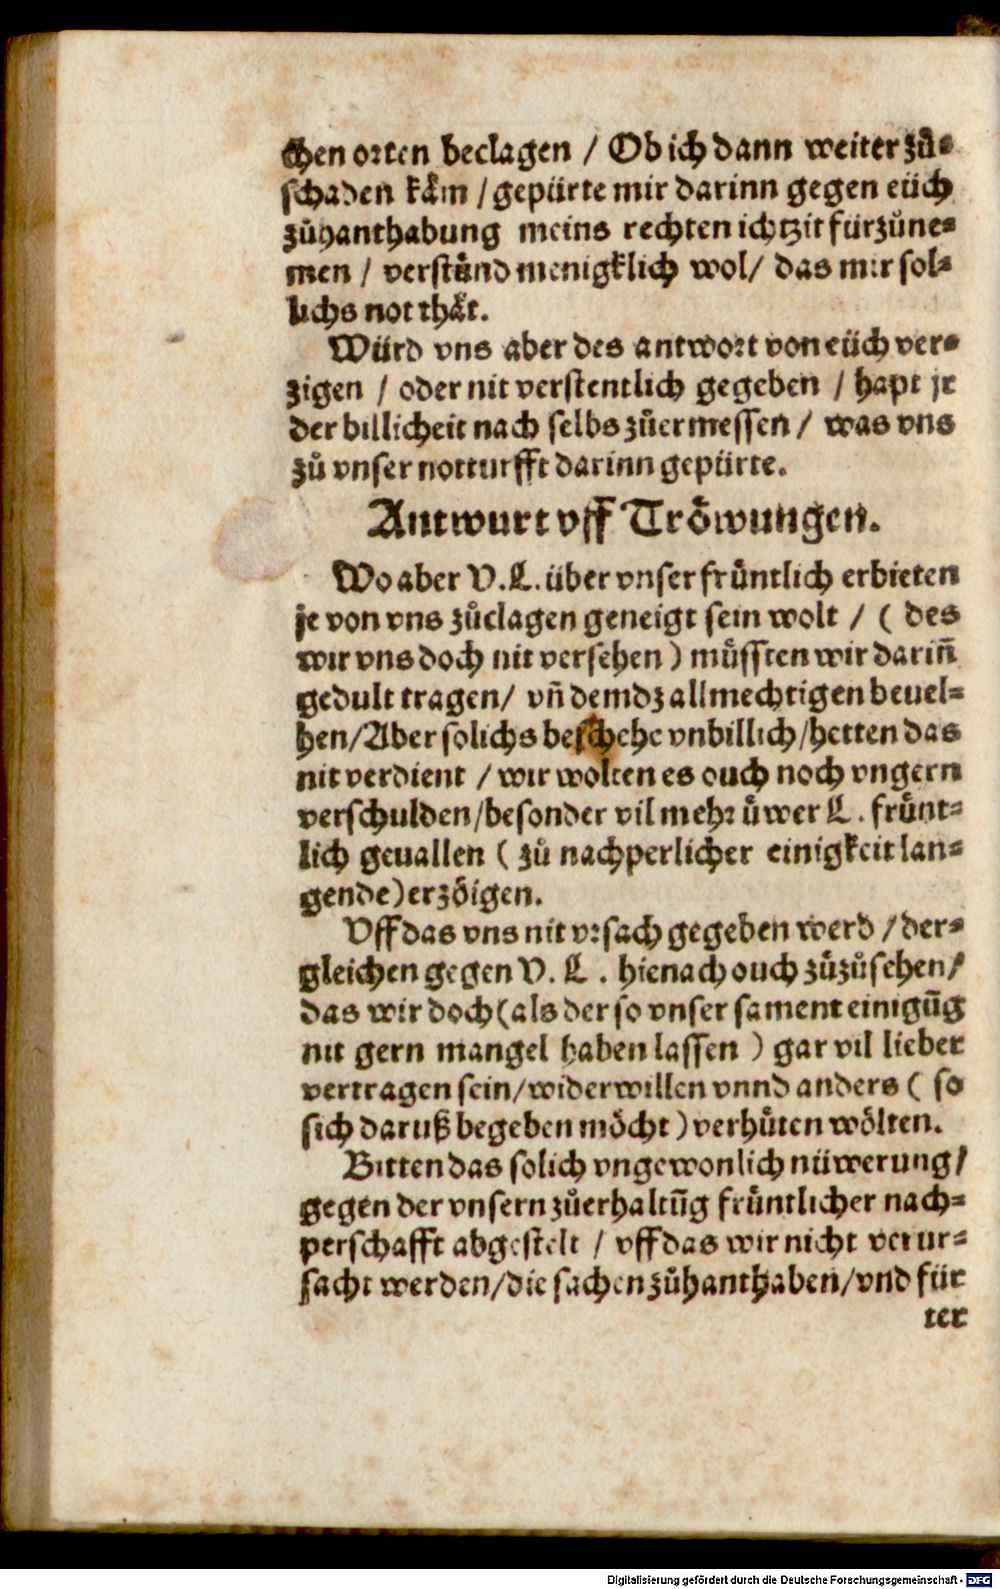 chen orten beclagen / Ob ich dann weiter zů-
schaden kåm / gepürte mir darinn gegen eüch
zůhanthabung meins rechten ichtzit fürzůne-
men / verstůnd menigklich wol/ das mir sol-
lichs not thåt.
Würd vns aber des antwort von eüch ver-
zigen / oder nit verstentlich gegeben / hapt jr
der billicheit nach selbs zůermessen / was vns
zů vnser notturfft darinn gepürte.
Antwurt vff Tröwungen.
Wo aber V.L. über vnser früntlich erbieten
je von vns zůclagen geneigt sein wolt / ( des
wir vns doch nit versehen ) müssten wir dariñ
gedult tragen/ vñ demdz allmechtigen beuel-
hen/Aber solichs beschehe vnbillich/hetten das
nit verdient / wir wolten es ouch noch vngern
verschulden/besonder vil mehr üwer L . frünt-
lich geuallen ( zů nachperlicher einigkeit lan-
gende) erzöigen.
Vff das vns nit vrsach gegeben werd / der-
gleichen gegen V. L . hienach ouch zůzůsehen/
das wir doch (als der so vnser sament einigūg
nit gern mangel haben lassen ) gar vil lieber
vertragen sein/widerwillen vnnd anders ( so
sich daruß begeben möcht ) verhüten wölten.
Bitten das solich vngewonlich nüwerung/
gegen der vnsern zůerhaltūg früntlicher nach-
perschafft abgestelt / vff das wir nicht verur-
sacht werden/die sachen zůhanthaben/vnd für
ter
Digitalisierung gefördert durch die Deutsche Forschungsgemeinschaft - DFG